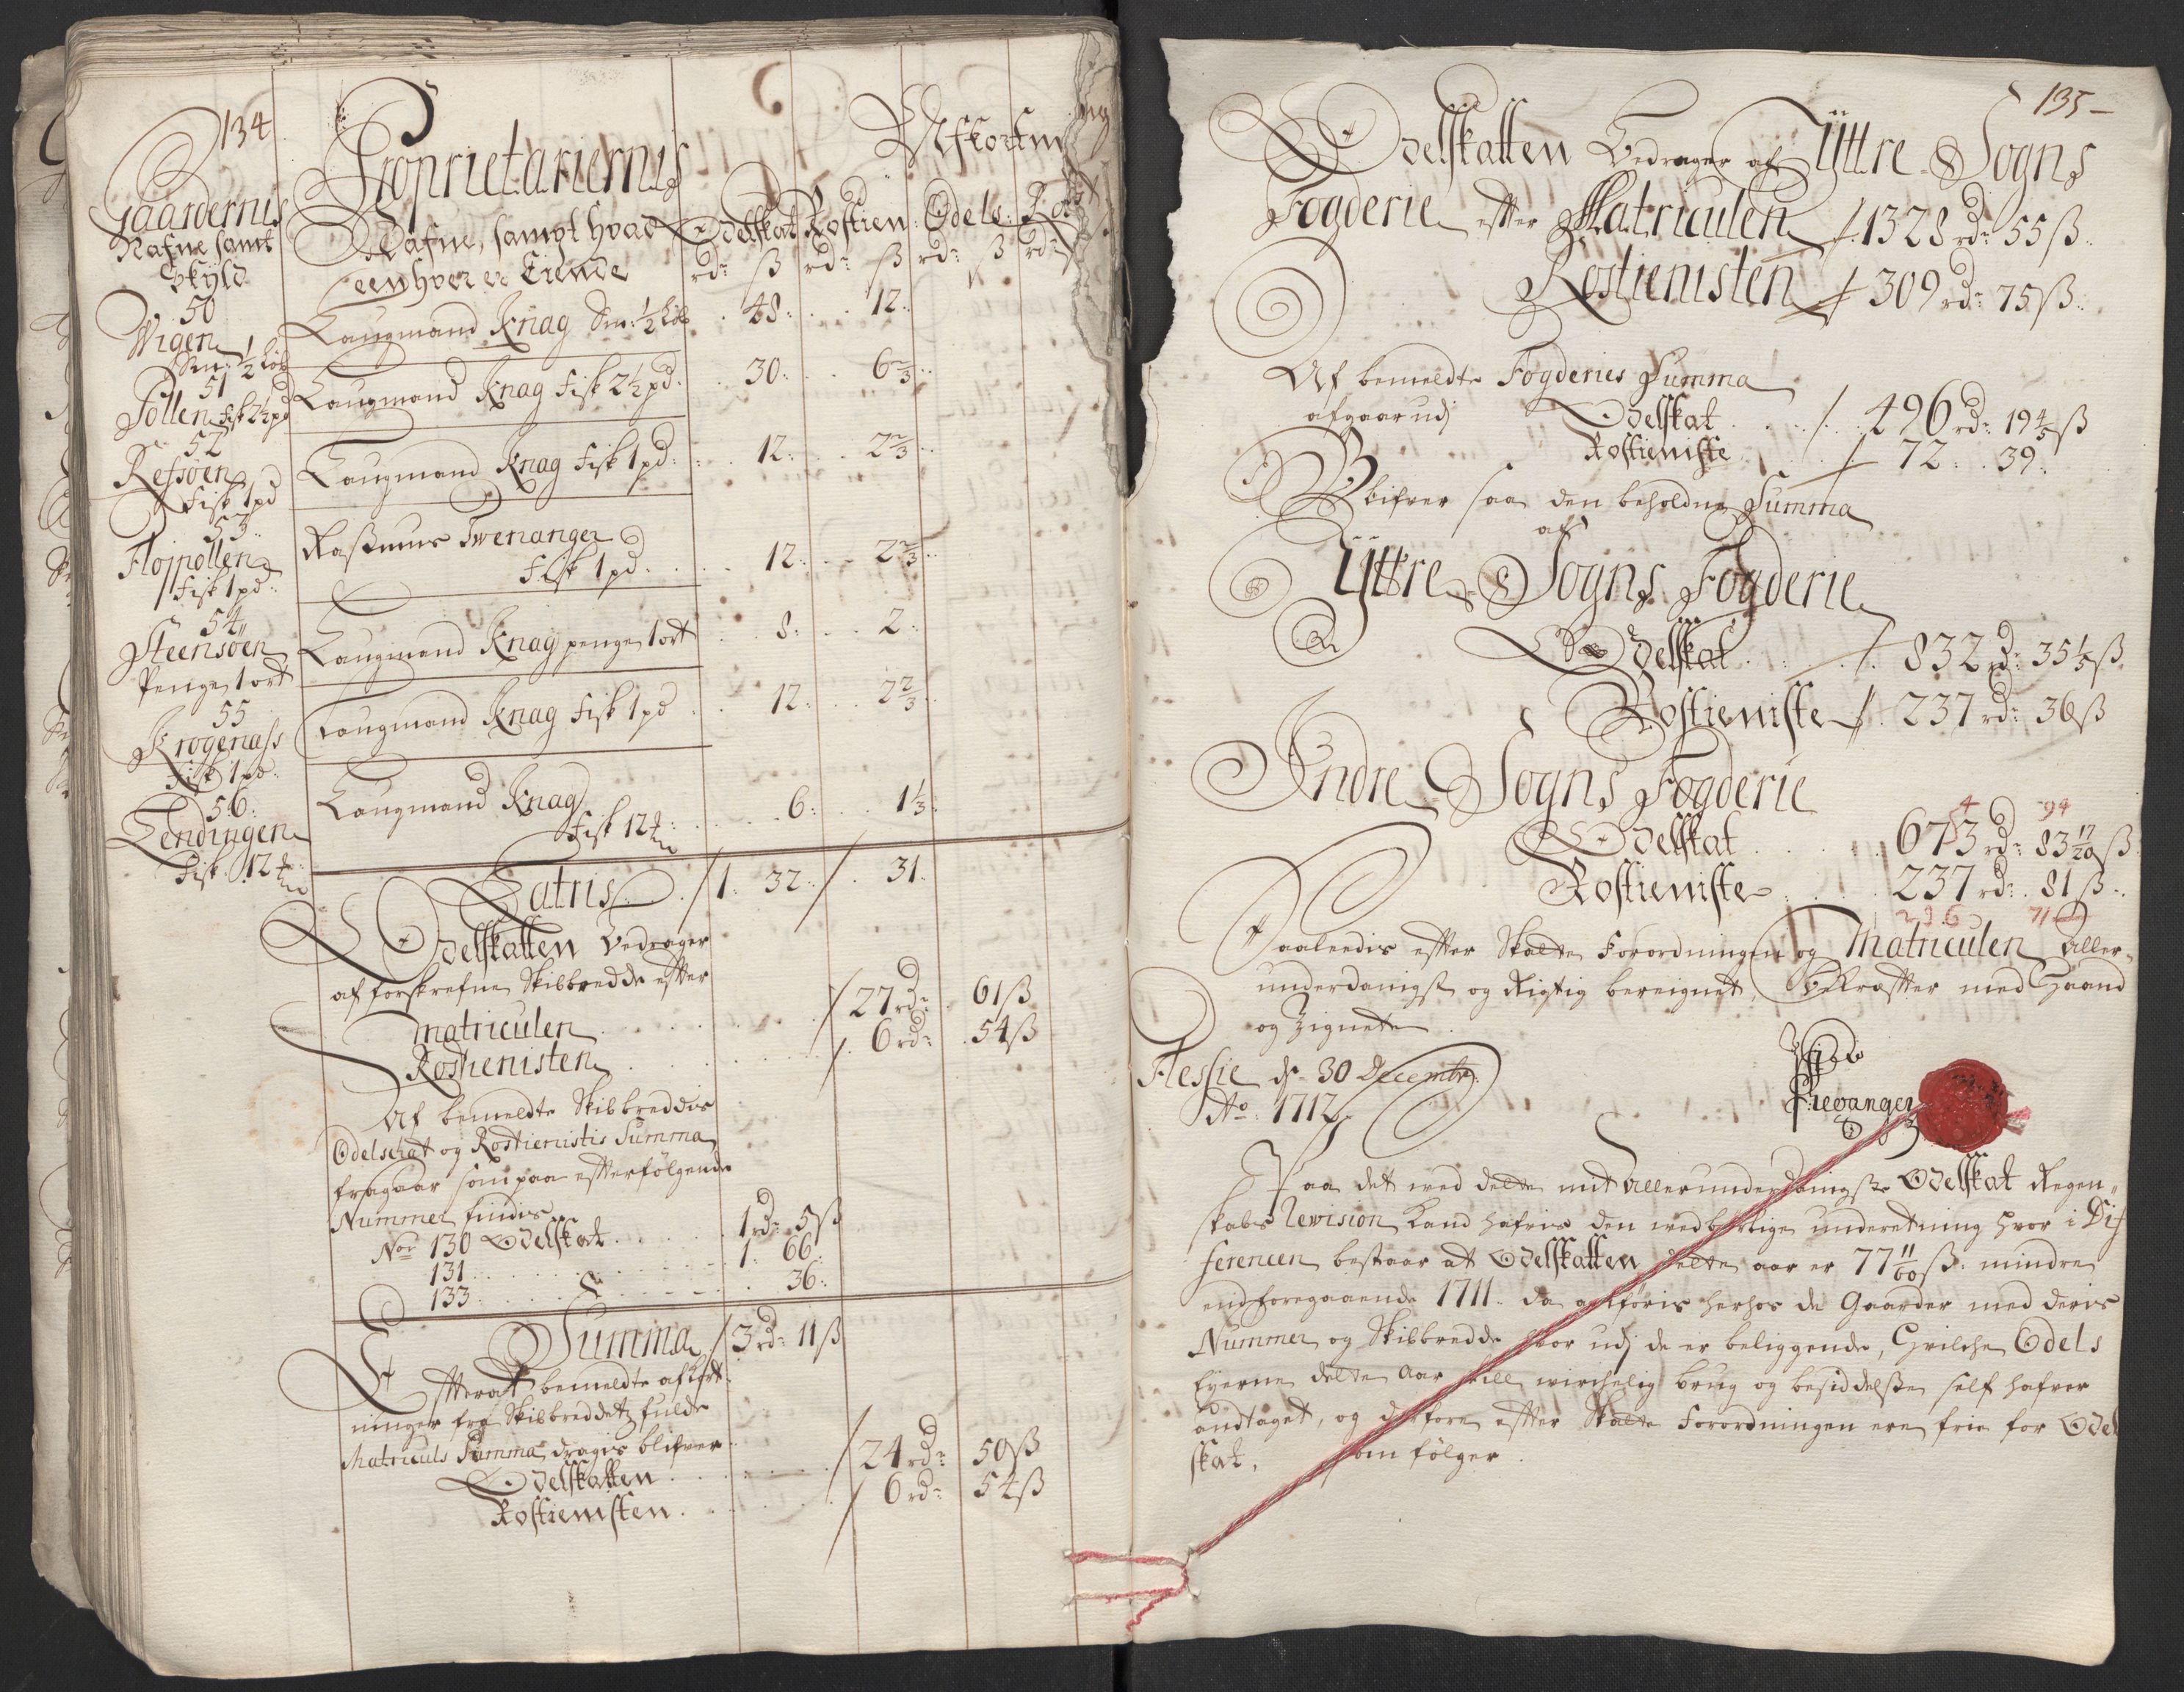 134
Gaardernis
Nafne samt
Skyld
Proprietariernis
Nafne, sampt hvad
eenhver er Eiende
Odelskat
Rostien:
Afkortning
Odels:
Ros
rdr ß rdr ß rdr ß rdr
50
Wigen
Sm: 1/2 Løb
Laugmand Knag Sm: 1/2 Løb . 48: . . 12:
51
Pollen fisk 2 1/2 pd
Laugmand Knag fisk 2 1/2 pd . . 30: . . 6 2/3 . .
52
Refsøen
Fisk 1 pd
Laugmand Knag fisk 1 pd: . . 12: . . 2 2/3 . .
53
Fløjpollen
Fisk 1 pd:
Rasmus Twenanger
Fisk 1 pd . . . 12: . . 2 2/3 . .
54
Steensøen
Penge 1 ort
Laugmand Knag penge 1 ort . . 8: . . 2:
55
Krogenass
Fisk 1 pd:
Laugmand Knag fisk 1 pd . . 12: . . 2 2/3
56:
Lendingen
Fisk 12
Laugmand Knag
Fisk 12 . . . 6: . . 1 1/3:
Latris . / 1: 32: / . 31:
Odelskatten bedrager
af forskrefne Skibbredde efter
Matriculen . . . . . . / 27 rdr . 61 ß
Rostienisten . . . . . / 6 rdr . 54 ß
Af bemeldte Skibbreddis
Odelschat og Rostienistis Summa
fragaar som paa efterfølgende
Nummer findis
No 130 Odelskat . . . . . 1 rdr 5 ß
131 . . . . . . . 1: 66:
133 . . . . . . . 36:
Summa / 3 rdr 11 ß
Efterat bemeldte afkort-
ninger fra Skibbreddetz fulde
Matriculs Summa dragis blifver
Odelskatten . . . . . / 24 rdr 50 ß
Rostienisten . . . . / 6 rdr 54 ß
135 —
Odelskatten Bedrager af Yttre Sogns
Fogderie efter Matriculen / 1328 rdr 55 ß
Rostienisten / 309 rdr 75 ß
Af bemeldte Fogderies Summa
afgaar udj Odelskat . . . / . 496 rdr 19 4/5 ß
Rostieniste . . / 72: . 39:
Blifver saa den beholdne Summa
af
Yttre Sogns Fogderie
Odelskat . . . / . 832 rdr 35 1/5 ß
Rostieniste / . 237 rdr 36 ß
Indre Sogns Fogderie
4 94
Odelskat . . . . . 673 rdr 83 17/20 ß
Rostieniste . . . . 237 rdr . 81 ß
236 71
Saaleedis efter Skatte Forordningen og Matriculen Aller-
underdanigst og Rigtig bereignet, Bekræfter med Haand
og Zignete
Flessie d. 30 Decembr:
Ao: 1712
Frevanger
Paa det ved dette mit Allerunderdanigste Odelskat Regen-
skabs Revision Kand hafvis den wedbørlige underetning hvor i Dif
ferencen bestaar at Odelskatten dette aar er 77 11/60 ß: mindre
end foregaaende 1711. da anføris herhos de Gaarder med deris
Nummer og Skibbredde hvor udj de er beliggende, Hvilche Odels
Eyerne dette Aar till wirchelig brug og besiddelsse self hafver
andtaget, og derfore efter Skatte Forordningen ere frie for Odel
skat, som følger.